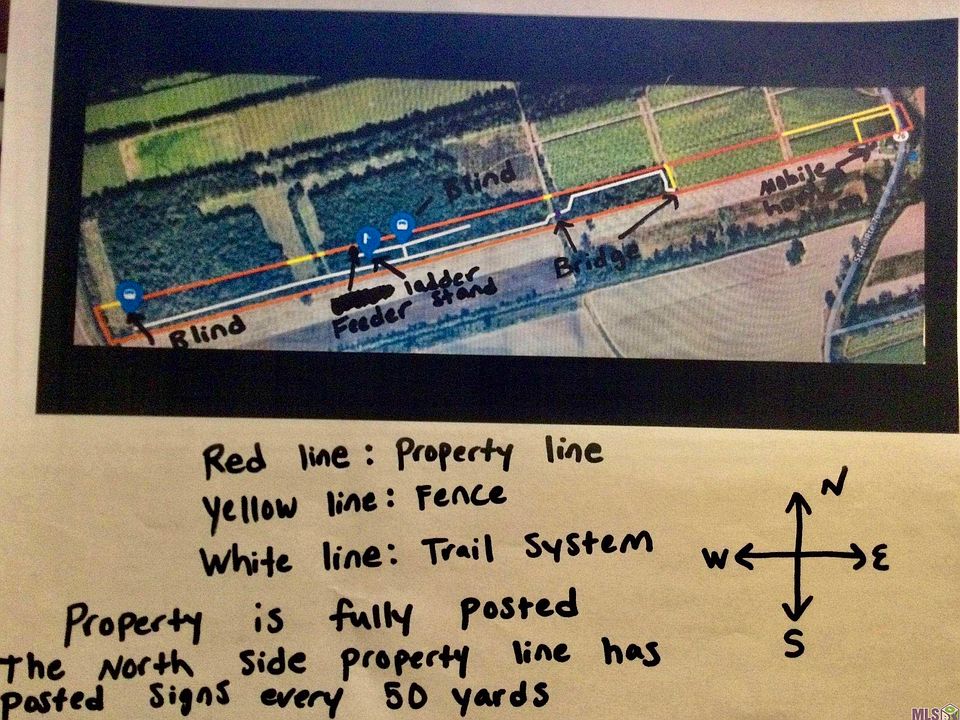 Blind
Mobile
home
Bridge
ladder
Feeder Stand
Blind
Red line: Property line
Yellow line: Fence
White line: Trail System
N
W E
S
Property is fully posted
The North Side property line has
posted Signs every 50 yards
MLS